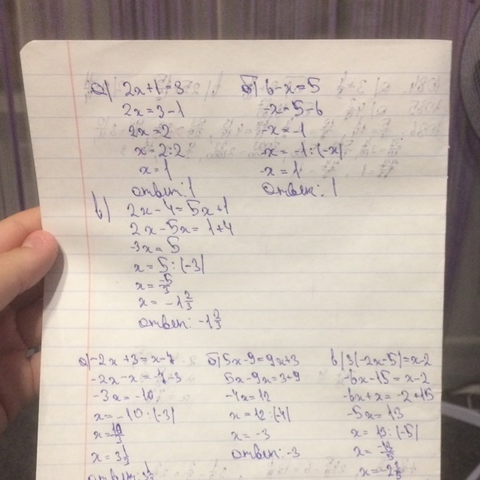 а) 2x+1=3
2x=3-1
2x=2
x=2:2
x=1
ответ: 1
б) 6-x=5
-x=5-6
-x=-1
x=-1:(-x)
x=1
ответ: 1
в) 2x-4=5x+1
2x-5x=1+4
-3x=5
x=5:(-3)
x=-5/3
x=-1 2/3
ответ: -1 2/3
а) -2x+3=x-7
-2x-x=-7-3
-3x=-10
x=-10:(-3)
x=10/3
x=3 1/3
ответ:
б) 5x-9=9x+3
5x-9x=3+9
-4x=12
x=12:(-4)
x=-3
ответ: -3
в) 3(-2x-5)=x-2
-6x-15=x-2
-6x+x=-2+15
-5x=13
x=13:(-5)
x=-13/5